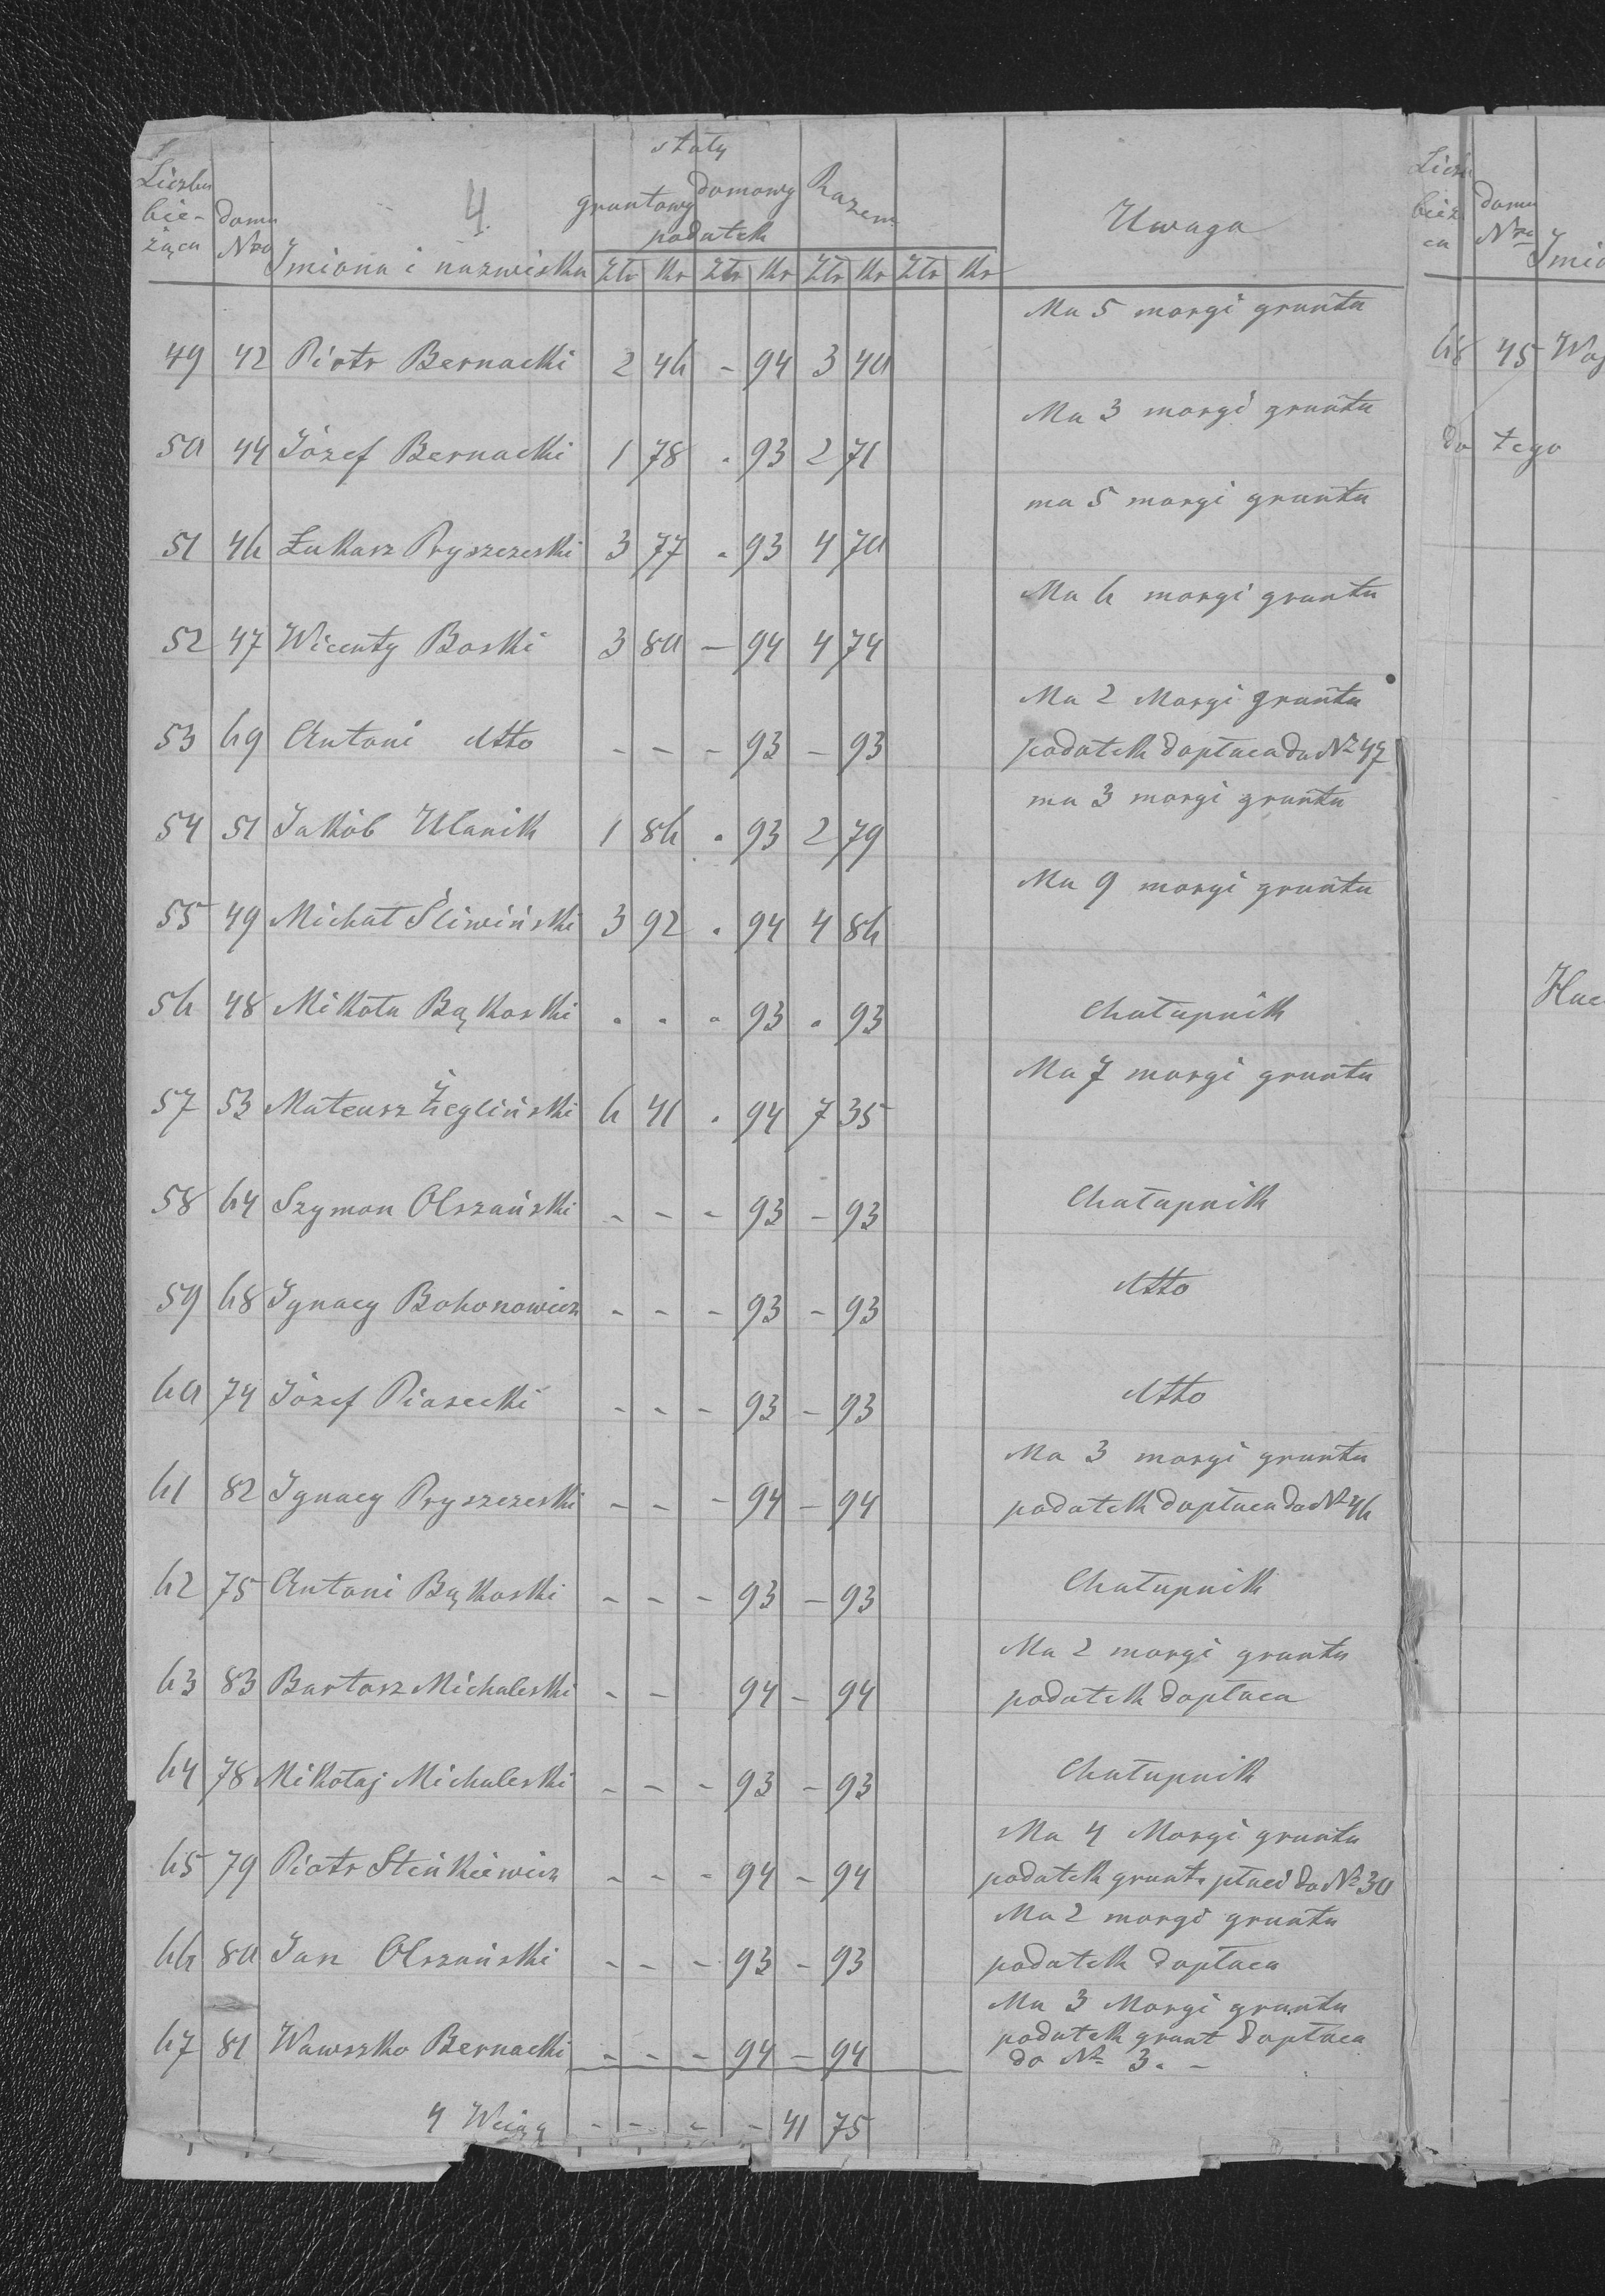 Liczba bie- żąca | domu Nro | 4. Imiona i nazwiska | stały gruntowy domowy podatek | Razem | Uwaga
Złr Kr Złr Kr Złr Kr Złr Kr
Ma 5 morgi gruntu
49 42 Piotr Bernacki 2 46 - 94 3 40
Ma 3 morgi gruntu
50 44 Józef Bernacki 1 78 . 93 2 71
ma 5 morgi gruntu
51 46 Łukasz Pryszczeski 3 77 . 93 4 70
Ma 6 morgi gruntu
52 47 Wicenty Boski 3 80 - 94 4 74
Ma 2 Morgi gruntu
53 69 Antoni dtto - - - 93 - 93 podatek dopłaca do No 47
ma 3 morgi gruntu
54 51 Jakób Ulanik 1 86 . 93 2 79
Ma 9 morgi gruntu
55 49 Michał Śliwiński 3 92 . 94 4 86
56 48 Mikoła Bąkoski . . . 93 . 93 Chałupnik
Ma 7 morgi gruntu
57 53 Mateusz Żegliński 6 41 . 94 7 35
58 64 Szymon Olszański - - - 93 - 93 Chałupnik
59 68 Ignacy Bohonowicz - - - 93 - 93 dtto
60 74 Józef Piasecki - - - 93 - 93 dtto
Ma 3 morgi gruntu
61 82 Ignacy Pryszczeski - - - 94 - 94 podatek dopłaca do No 46
62 75 Antoni Bąkoski - - - 93 - 93 Chałupnik
Ma 2 morgi gruntu
63 83 Bartosz Michaleski - - 94 - 94 podatek dopłaca
64 78 Mikołaj Michaleski - - - 93 - 93 Chałupnik
Ma 4 Morgi gruntu
65 79 Piotr Stinkiewicz - - - 94 - 94 podatek grunt. płaci do No 30
Ma 2 morgi gruntu
66 80 Jan Olszański - - - 93 - 93 podatek dopłaca
Ma 3 Morgi gruntu
67 81 Wawszko Bernacki - - - 94 - 94 podatek grunt dopłaca
do No 3. -
4 - - - - 41 75
domu
Nro
68 45
do tego